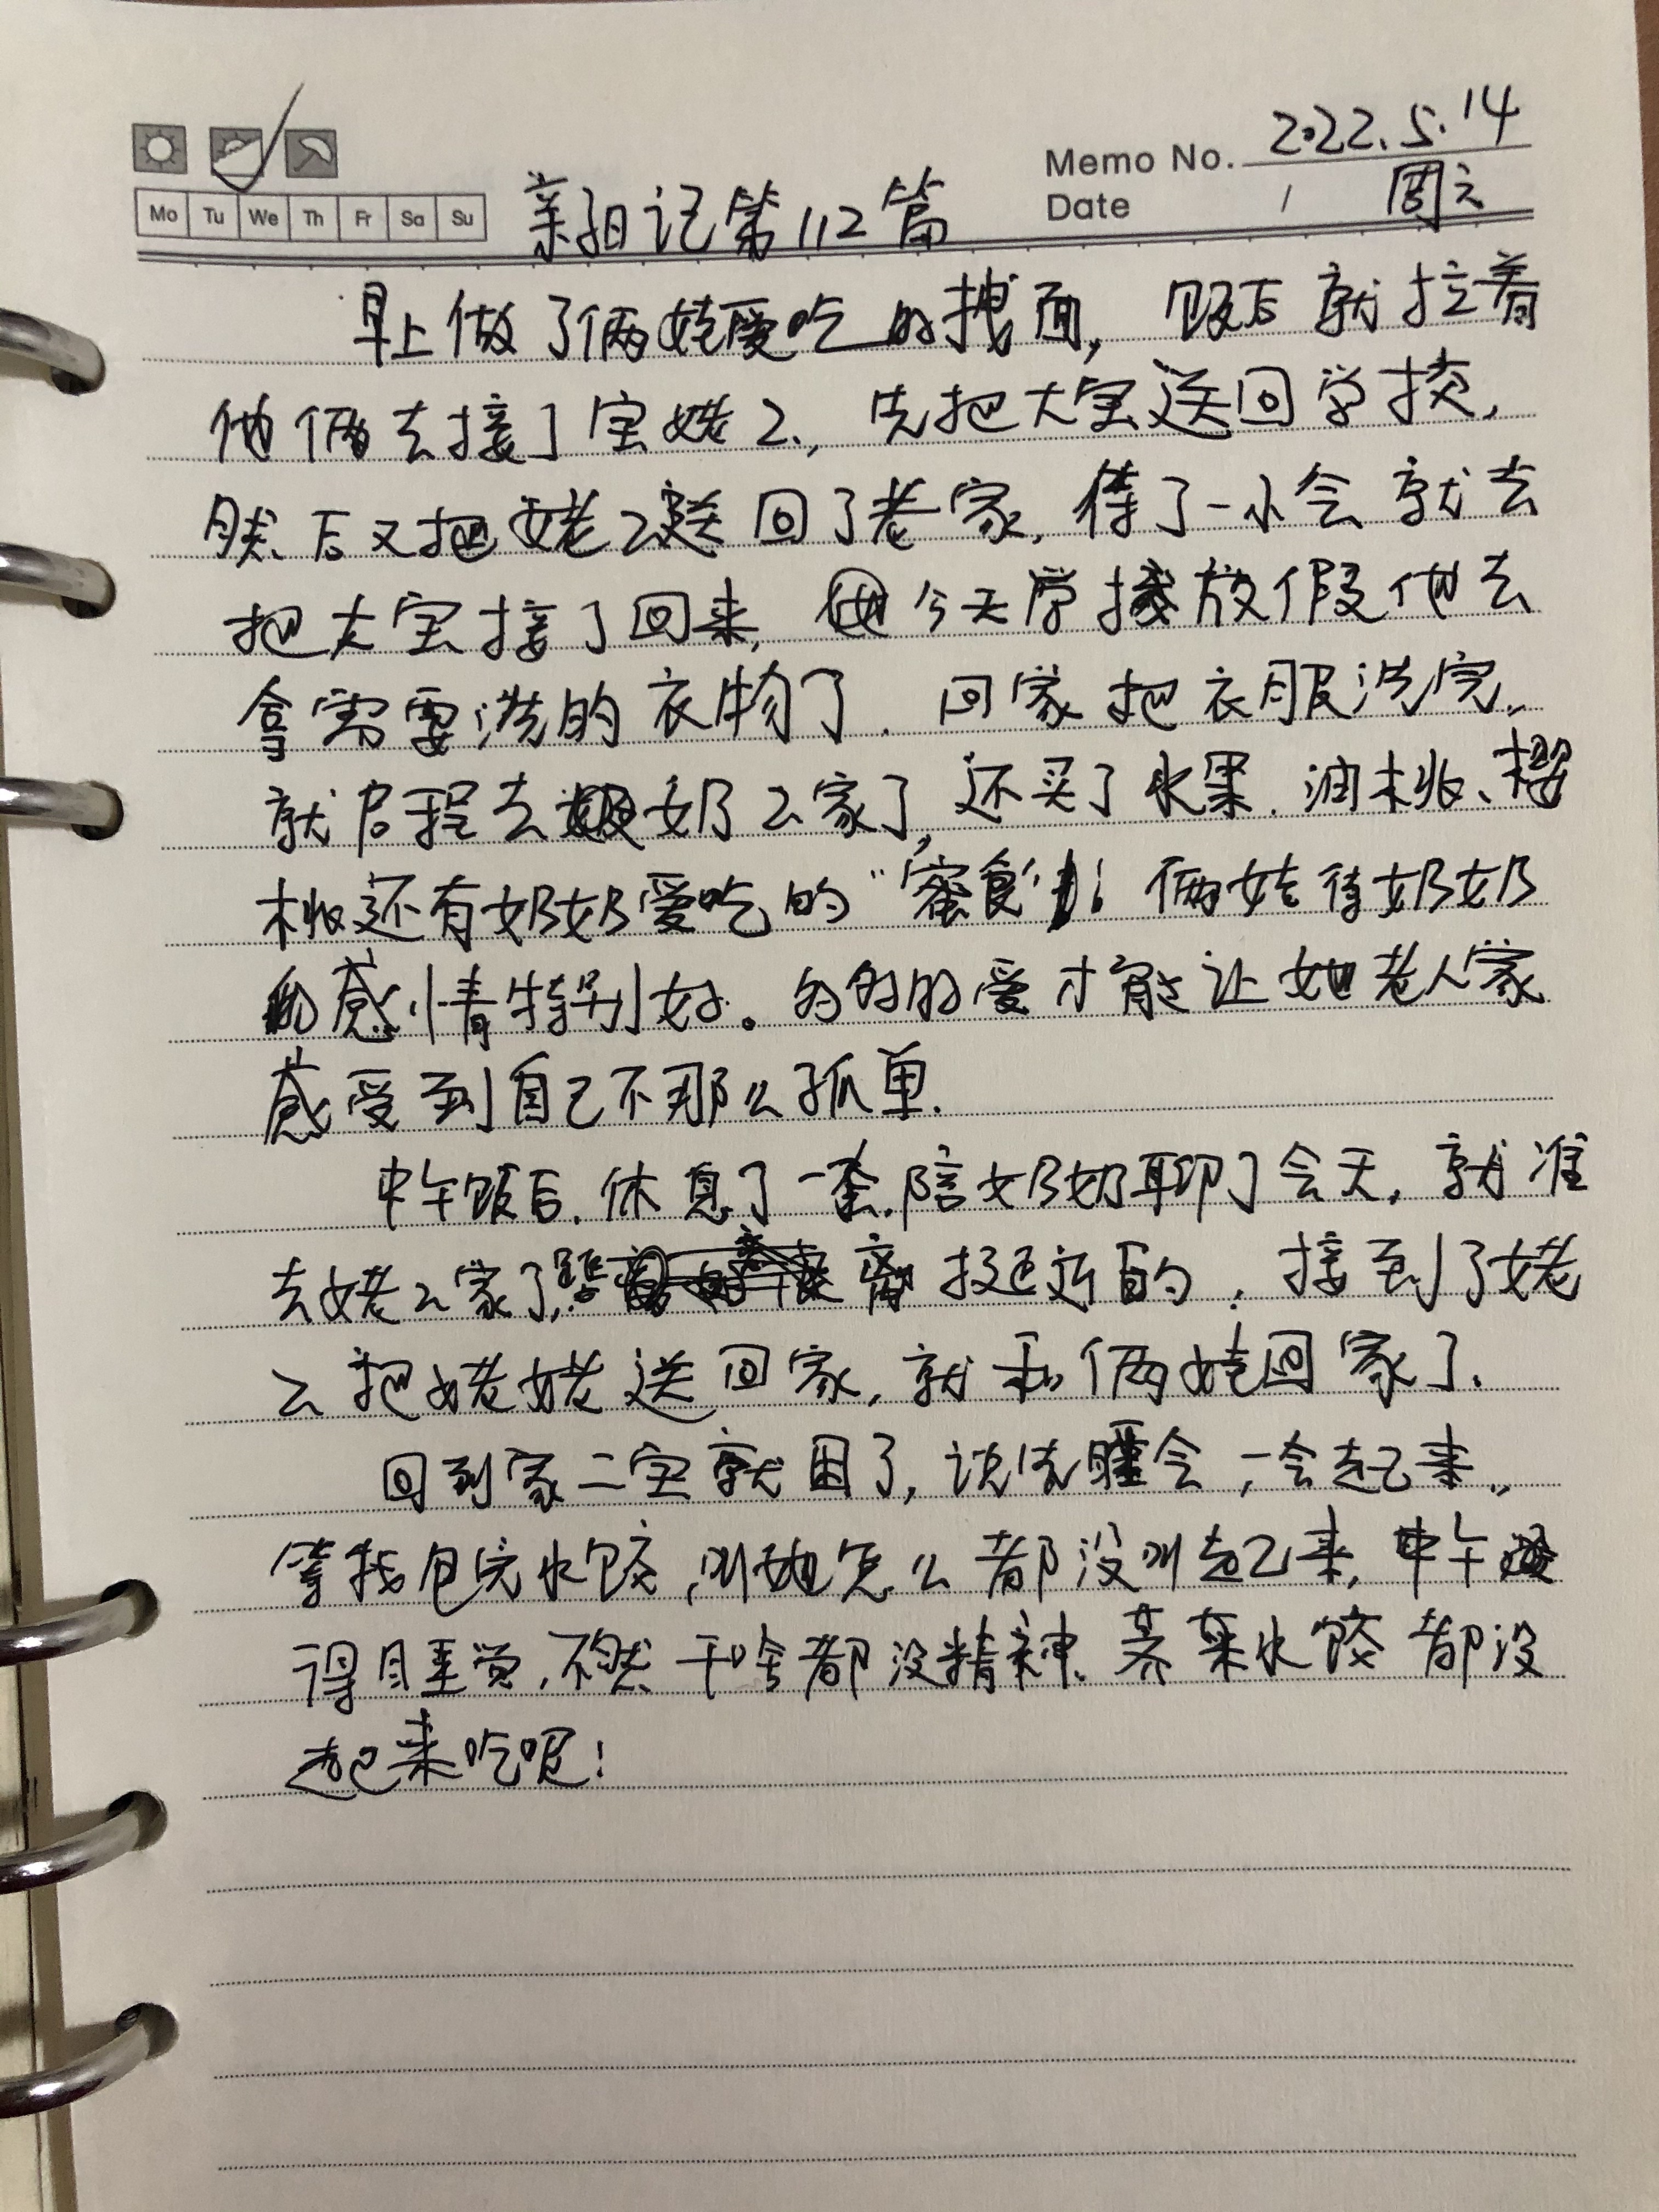 Memo No. 2022.5.14
Mo Tu We Th Fr Sa Su
Date / 周六
亲子日记第112篇
早上做了俩娃爱吃的拽面,饭后就拉着
他俩去接了宝姥2.,先把大宝送回学校,
然后又把姥2送回了老家,待了一小会就去
把大宝接了回来,他今天学校放假他去
拿需要洗的衣物了.回家把衣服洗完,
就启程去奶2家了,还买了水果.油桃、樱
桃还有奶奶爱吃的“蜜食”!俩娃待奶奶
的感情特别好。的爱才能让她老人家
感受到自己不那么孤单.
中午饭后.休息了一会.陪奶奶聊了会天,就准
去姥2家了,离挺近的,接到了姥
2把姥姥送回家,就和俩娃回家了.
回到家二宝就困了,说先睡会,一会起来,
等我包完水饺,叫她怎么都没叫起来,中午
得睡觉,不然干啥都没精神.荠菜水饺都没
起来吃呢!